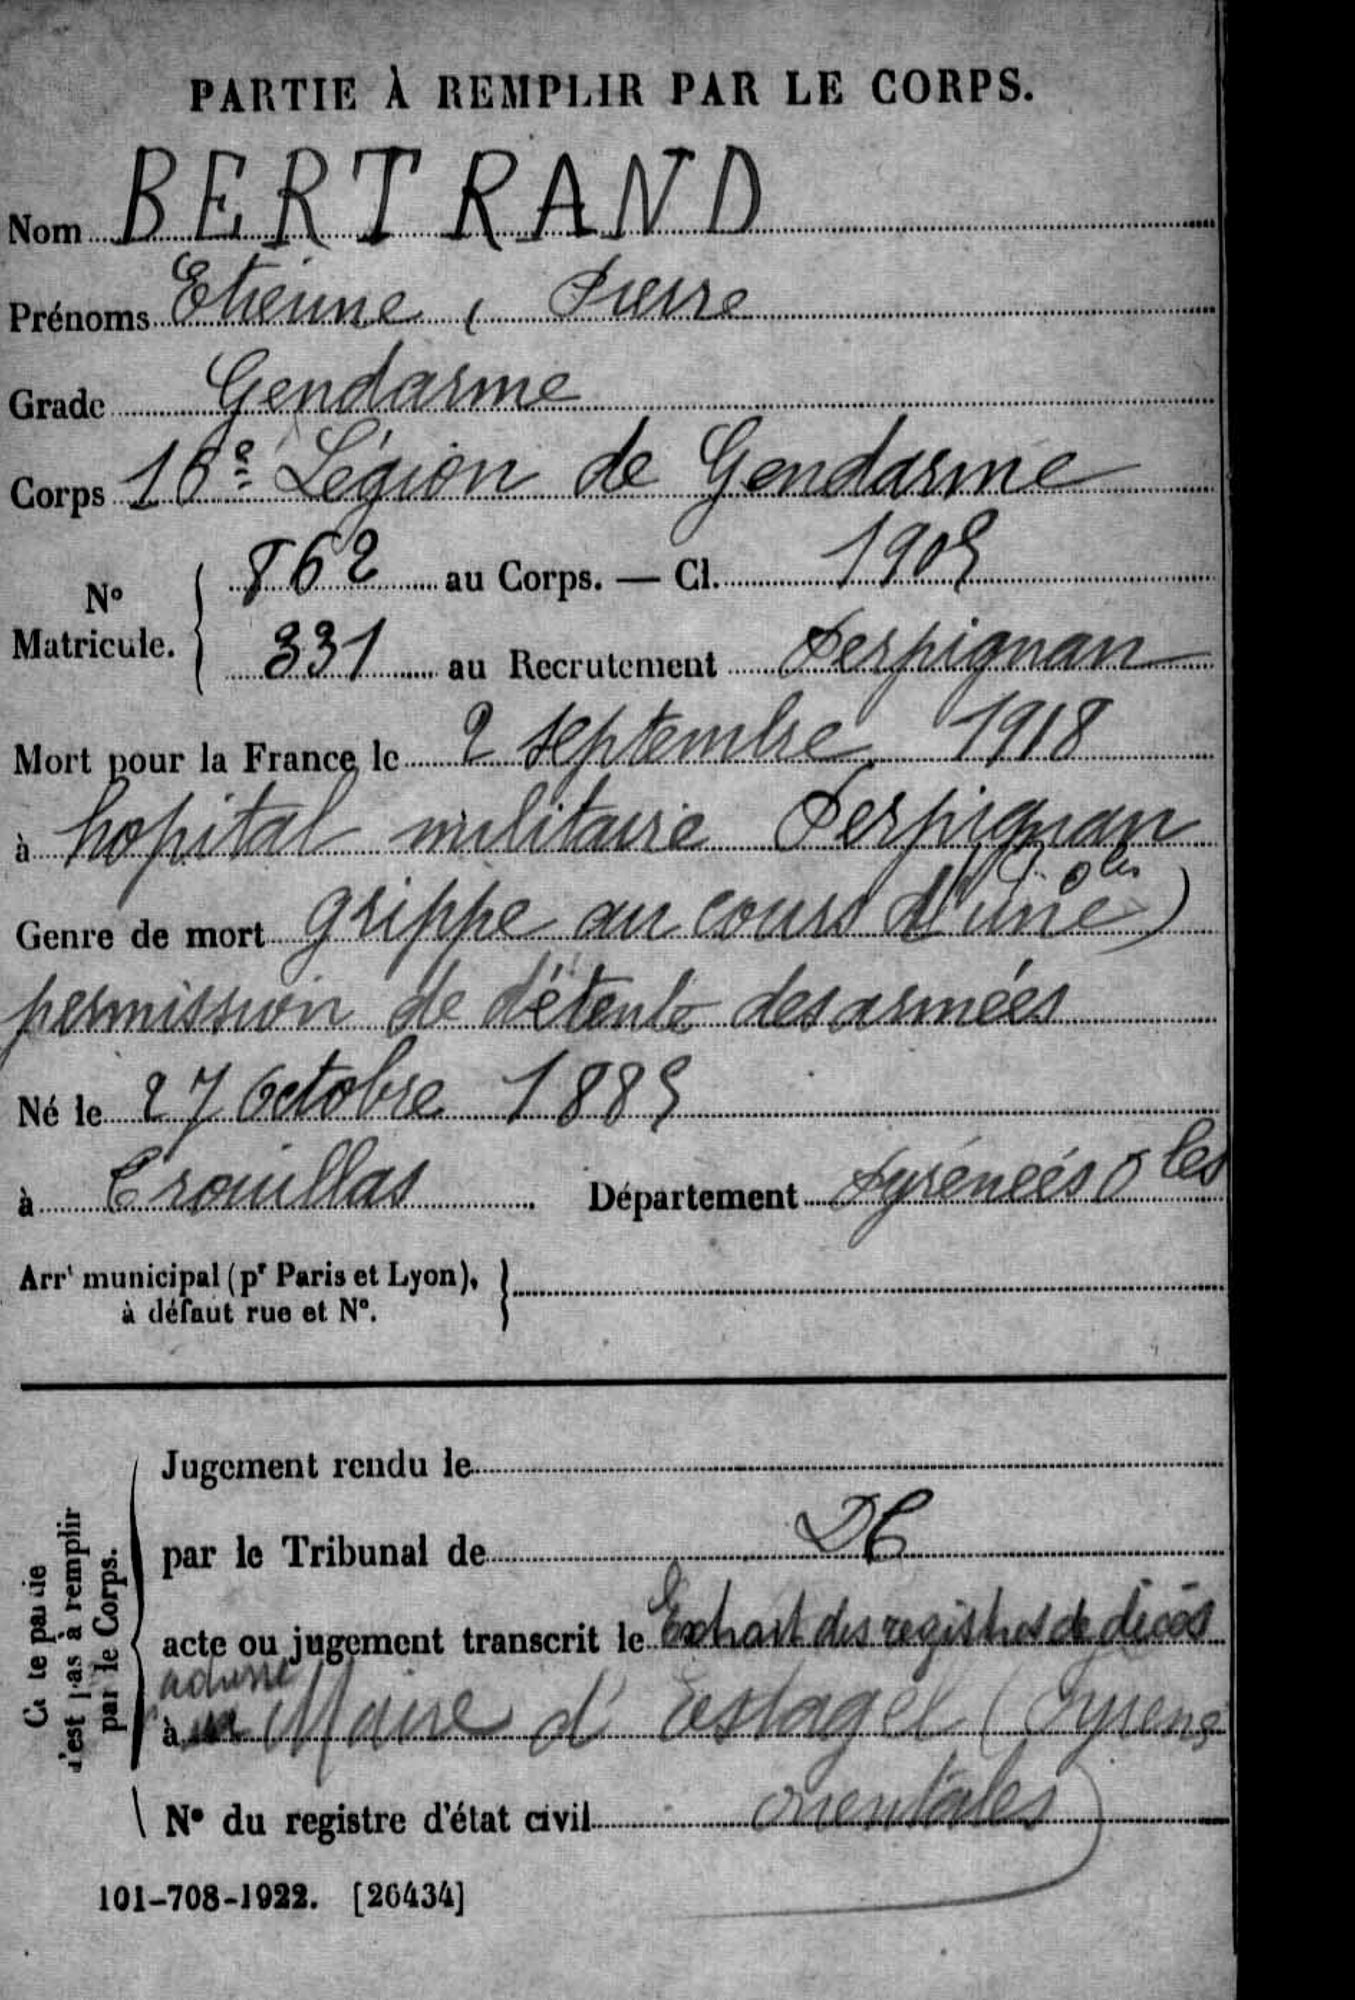 PARTIE À REMPLIR PAR LE CORPS.
Nom BERTRAND
Prénoms Etienne, Pierre
Grade Gendarme
Corps 16e Légion de Gendarme
No Matricule. { 862 au Corps. — Cl. 1909
331 au Recrutement Perpignan
Mort pour la France le 2 septembre 1918
à hopital militaire Perpignan
P. Oles)
Genre de mort grippe au cours d'une
permission de détente des armées
Né le 27 Octobre 1889
à Trouillas Département Pyrénées Oles
Arrt municipal (pr Paris et Lyon),
à défaut rue et No. }
Jugement rendu le
par le Tribunal de DC
acte ou jugement transcrit le Extrait des registres de décès
adressé
à Maire d'Estagel (Pyrénées
No du registre d'état civil orientales)
Cette partie
n'est pas à remplir
par le Corps.
101-708-1922. [26434]